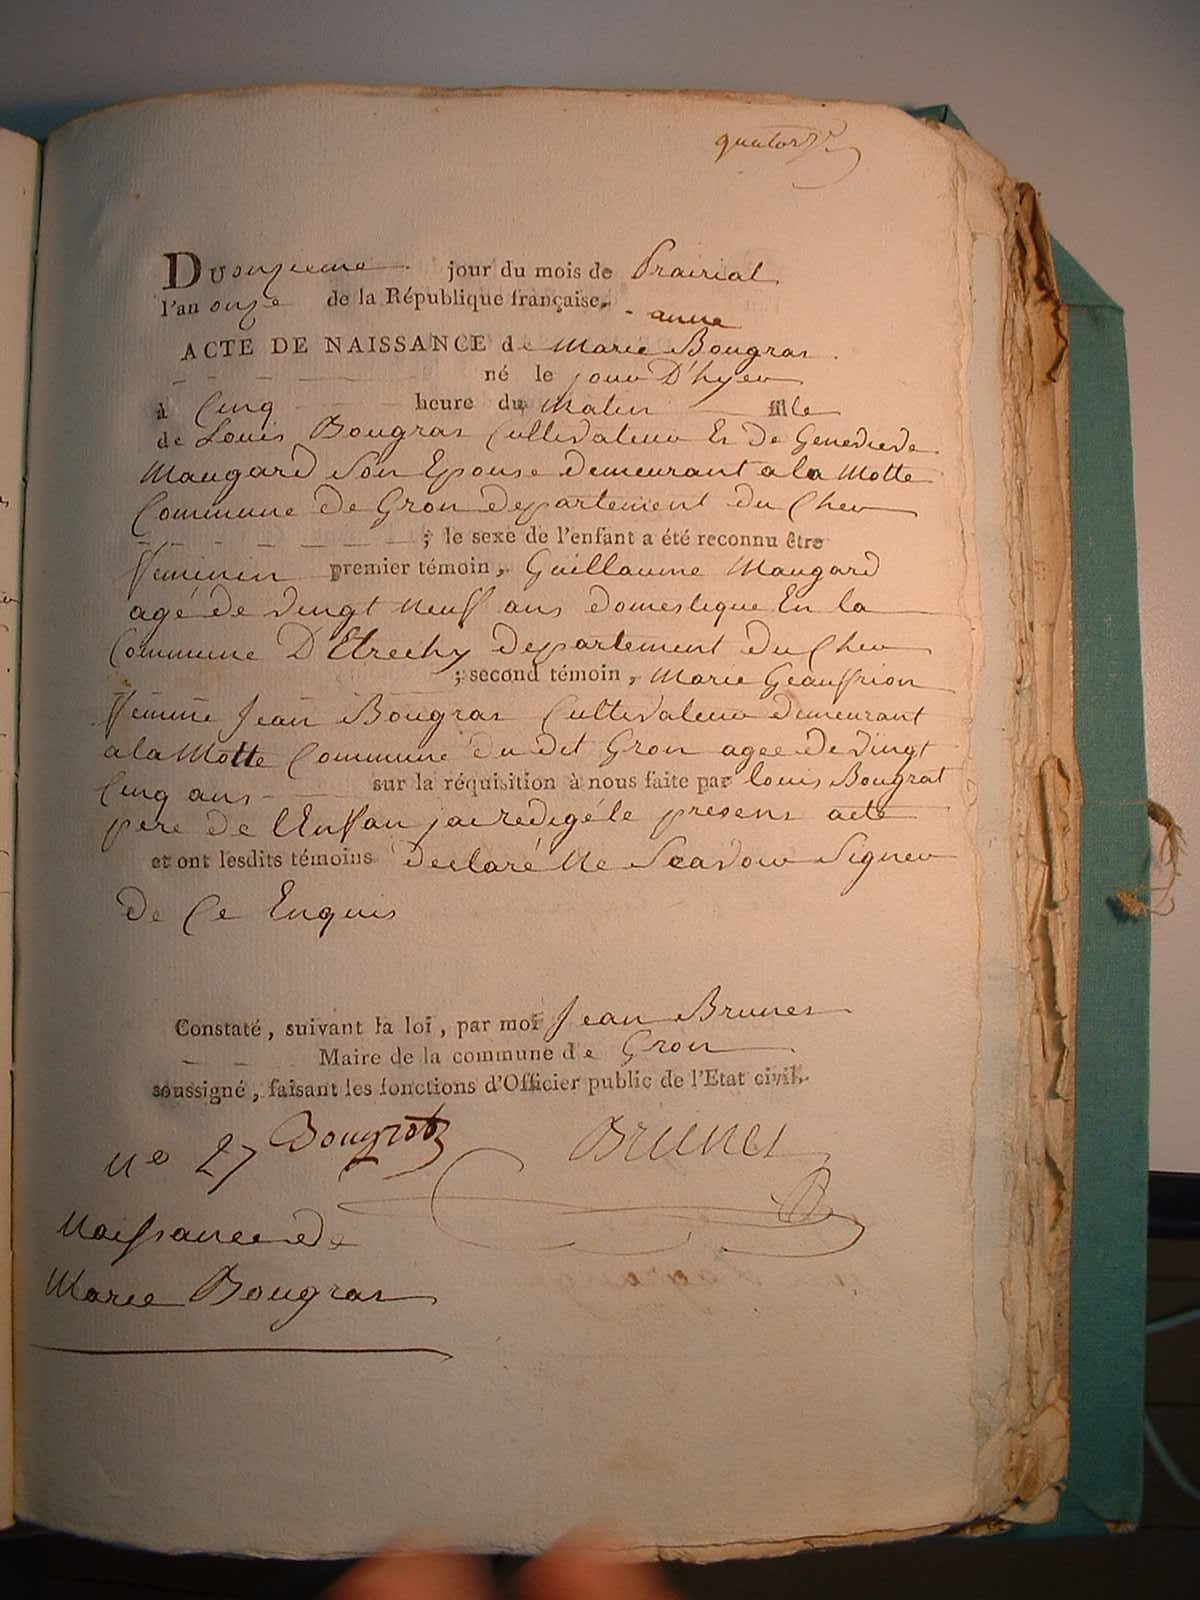 quatorze
Du onzieme jour du mois de Prairial
l'an onze de la République française.
anne
ACTE DE NAISSANCE de Marie Bougras
né le jour D'hyer
à Cinq heure du Matin fille
de Louis Bougras Cultivateur Et De Genevieve
Maugard Son Epouse demeurant a la Motte
Commune de Gron departement du Cher
; le sexe de l'enfant a été reconnu être
feminin premier témoin, Guillaume Maugard
agé de vingt neuf ans domestique En la
Commune D'Etrechy departement du Cher
; second témoin, Marie Geauffrion
femme Jean Bougras Cultivateur demeurant
a la Motte Commune du dit Gron agee de vingt
Cinq ans sur la réquisition à nous faite par louis Bougrat
pere de l'Enfan jai redigé le present acte
et ont lesdits témoins declaré Ne Scavoir Signer
De Ce Enquis
Constaté, suivant la loi, par moi Jean Brunet
Maire de la commune de Gron
soussigné, faisant les fonctions d'Officier public de l'Etat civil.
Bougrat Brunet
No 27
Naissance de
Marie Bougras